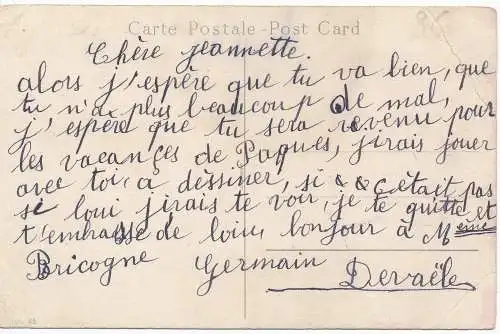 Carte Postale - Post Card
Chère jeannette.
alors j'espère que tu va bien, que
tu n'a plus beaucoup de mal,
j'espère que tu sera revenu pour
les vacances de Paques, jirais jouer
avec toi, a dessiner, si c'était pas
si loui jirais te voir, je te quitte et
t'embrasse de loin, bonjour à Meme
Bricogne Germain Devaële